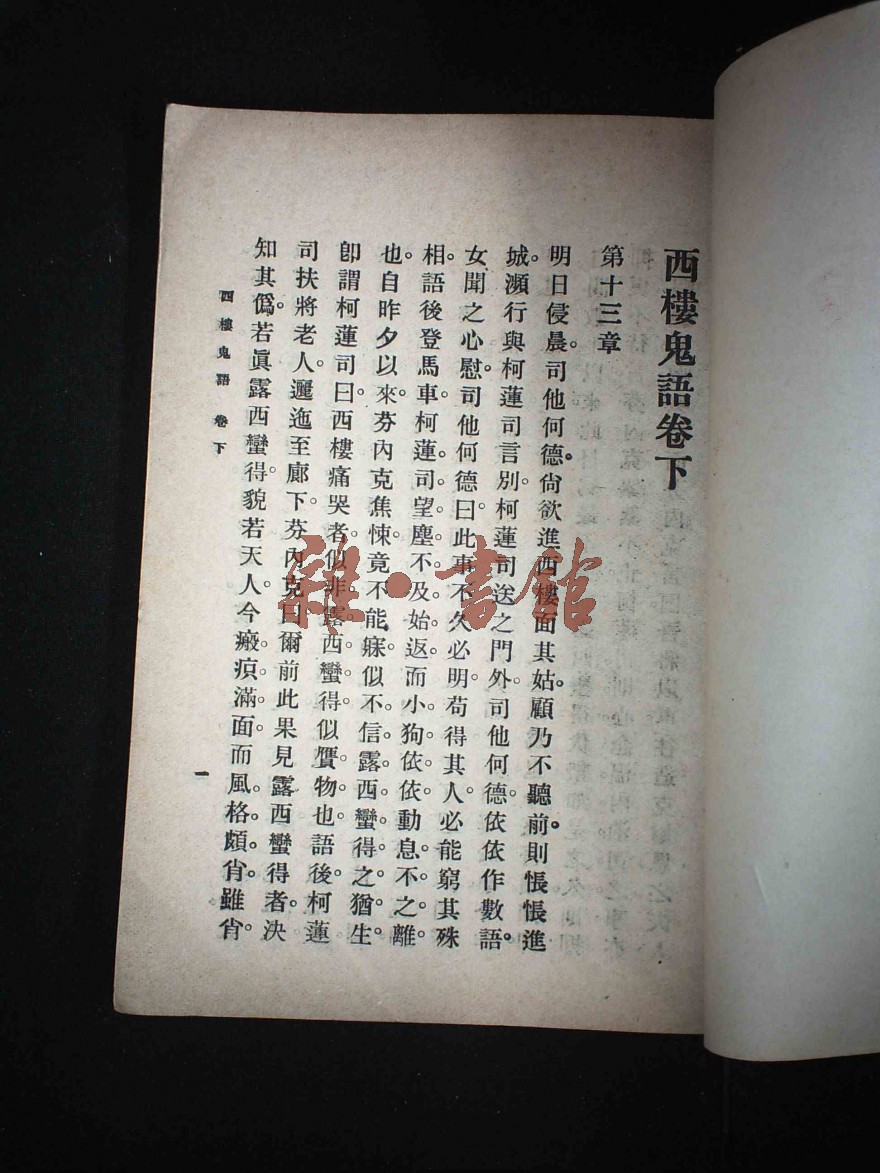 西樓鬼語卷下
第十三章
明日侵晨。司他何德尙欲進西樓面其姑。顧乃不聽前。則悵悵進
城。瀕行與柯蓮司言別。柯蓮司送之門外。司他何德依依作數語。
女聞之心慰。司他何德曰。此事不久必明。苟得其人。必能窮其殊
相。語後登馬車。柯蓮司望塵不及始返。而小狗依依。動息不之離
也。自昨夕以來。芬內克焦悚。竟不能寐。似不信露西蠻得之猶生
卽謂柯蓮司曰。西樓痛哭者。似非露西蠻得。似贋物也。語後柯蓮
司扶將老人。邐迤至廊下。芬內克曰。爾前此果見露西蠻得者。決
知其僞。若眞露西蠻得。貌若天人。今瘢痕滿面。而風格頗肖。雖肖
西樓鬼語 卷下
一
雜·書館